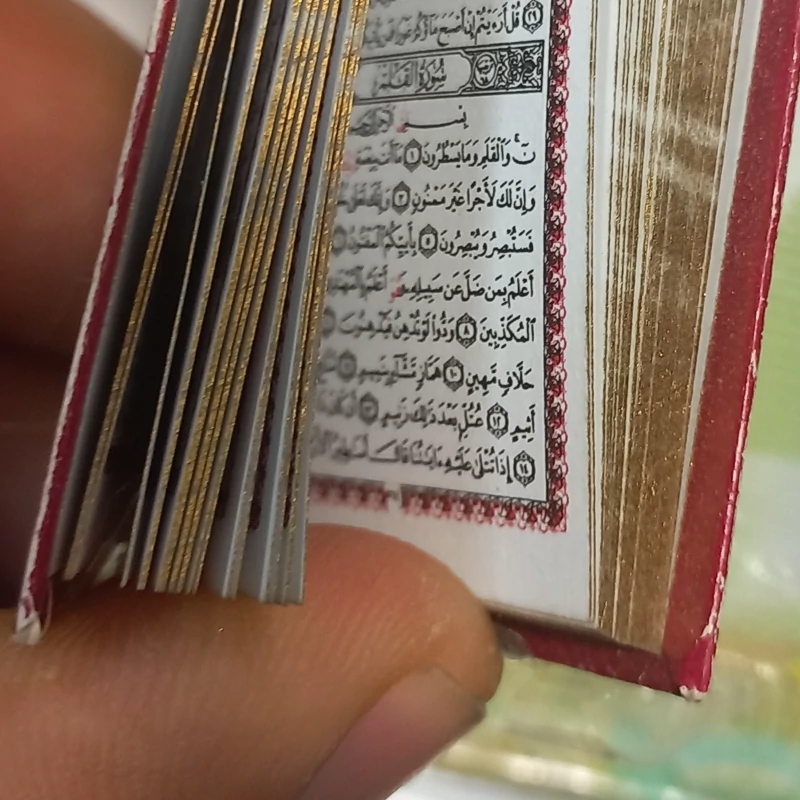 ٢٩ قُلْ أَرَءَيْتُمْ إِنْ أَصْبَحَ مَآؤُكُمْ غَوْرًا
سُورَةُ القَلَمِ
بِسْمِ
نٓ وَٱلْقَلَمِ وَمَا يَسْطُرُونَ ١ مَآ أَنتَ بِنِعْمَةِ
وَإِنَّ لَكَ لَأَجْرًا غَيْرَ مَمْنُونٍ ٣ وَإِنَّكَ لَعَلَىٰ
فَسَتُبْصِرُ وَيُبْصِرُونَ ٥ بِأَييِّكُمُ ٱلْمَفْتُونُ
أَعْلَمُ بِمَن ضَلَّ عَن سَبِيلِهِۦ أَعْلَمُ بِٱلْمُهْتَدِينَ
ٱلْمُكَذِّبِينَ ٨ وَدُّوا۟ لَوْ تُدْهِنُ فَيُدْهِنُونَ
حَلَّافٍ مَّهِينٍ ١٠ هَمَّازٍ مَّشَّآءٍۭ بِنَمِيمٍ ١١
أَثِيمٍ ١٢ عُتُلٍّۭ بَعْدَ ذَٰلِكَ زَنِيمٍ ١٣ أَن كَانَ
١٤ إِذَا تُتْلَىٰ عَلَيْهِ ءَايَٰتُنَا قَالَ أَسَٰطِيرُ